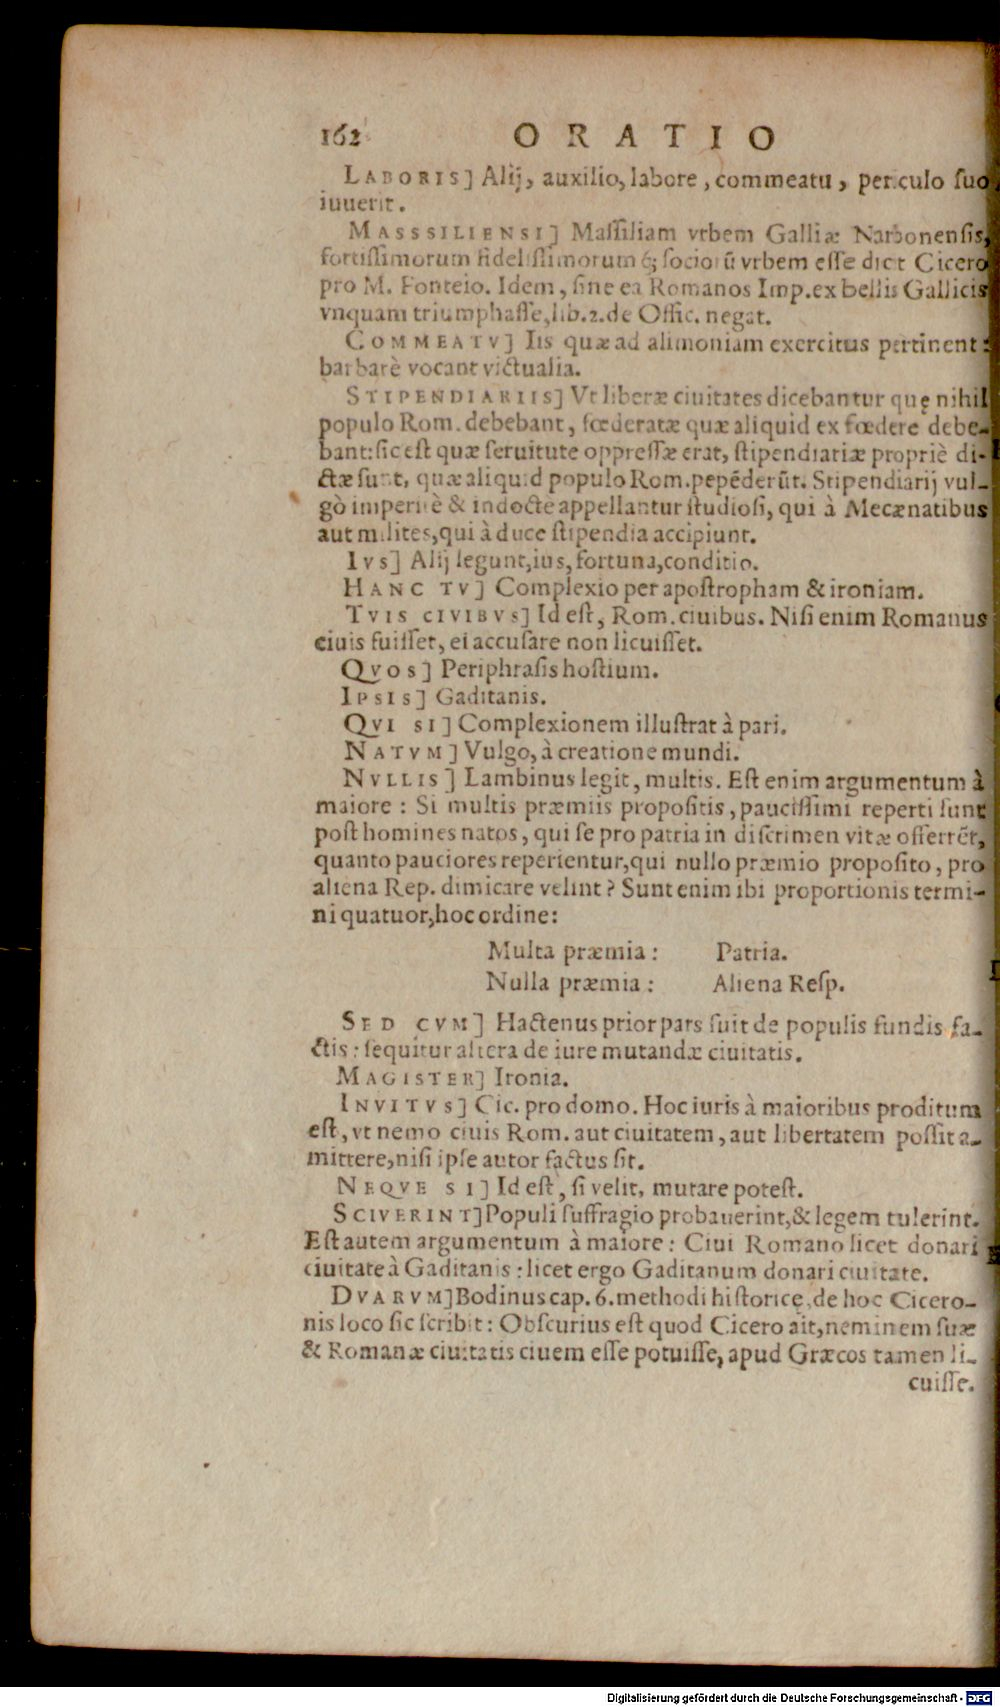 162 ORATIO
LABORIS] Alij, auxilio, labore, commeatu, periculo suo
iuuerit.
MASSSILIENSI] Maſſiliam vrbem Galliæ Narbonenſis,
fortiſſimorum fideliſſimorumq́; ſociorũ vrbem eſſe dicit Cicero
pro M. Fonteio. Idem, ſine ea Romanos Imp. ex bellis Gallicis
vnquam triumphaſſe, lib. 2. de Offic. negat.
COMMEATV] Iis quæ ad alimoniam exercitus pertinent:
barbarè vocant victualia.
STIPENDIARIIS] Vt liberæ ciuitates dicebantur quę nihil
populo Rom. debebant, fœderatæ quæ aliquid ex fœdere debe-
bant: ſic eſt quæ ſeruitute oppreſſæ erat, ſtipendiariæ propriè di-
ctæ ſunt, quæ aliquid populo Rom. pepẽderũt. Stipendiarij vul-
gò imperitè & indocte appellantur ſtudioſi, qui à Mecænatibus
aut milites, qui à duce ſtipendia accipiunt.
IVS] Alij legunt, ius, fortuna, conditio.
HANC TV] Complexio per apoſtropham & ironiam.
TVIS CIVIBVS] Id eſt, Rom. ciuibus. Niſi enim Romanus
ciuis fuiſſet, ei accuſare non licuiſſet.
QVOS] Periphraſis hoſtium.
IPSIS] Gaditanis.
QVI SI] Complexionem illuſtrat à pari.
NATVM] Vulgo, à creatione mundi.
NVLLIS] Lambinus legit, multis. Eſt enim argumentum à
maiore: Si multis præmiis propoſitis, pauciſſimi reperti ſunt
poſt homines natos, qui ſe pro patria in diſcrimen vitæ offerrẽt,
quanto pauciores reperientur, qui nullo præmio propoſito, pro
aliena Rep. dimicare velint? Sunt enim ibi proportionis termi-
ni quatuor, hoc ordine:
Multa præmia: Patria.
Nulla præmia: Aliena Reſp.
SED CVM] Hactenus prior pars fuit de populis fundis fa-
ctis: ſequitur altera de iure mutandæ ciuitatis.
MAGISTER] Ironia.
INVITVS] Cic. pro domo. Hoc iuris à maioribus proditum
eſt, vt nemo ciuis Rom. aut ciuitatem, aut libertatem poſſit a-
mittere, niſi ipſe autor factus ſit.
NEQVE SI] Id eſt, ſi velit, mutare poteſt.
SCIVERINT] Populi ſuffragio probauerint, & legem tulerint.
Eſt autem argumentum à maiore: Ciui Romano licet donari
ciuitate à Gaditanis: licet ergo Gaditanum donari ciuitate.
DVARVM] Bodinus cap. 6. methodi hiſtoricę, de hoc Cicero-
nis loco ſic ſcribit: Obſcurius eſt quod Cicero ait, neminem ſuæ
& Romanæ ciuitatis ciuem eſſe potuiſſe, apud Græcos tamen li-
cuiſſe.
Digitalisierung gefördert durch die Deutsche Forschungsgemeinschaft - DFG